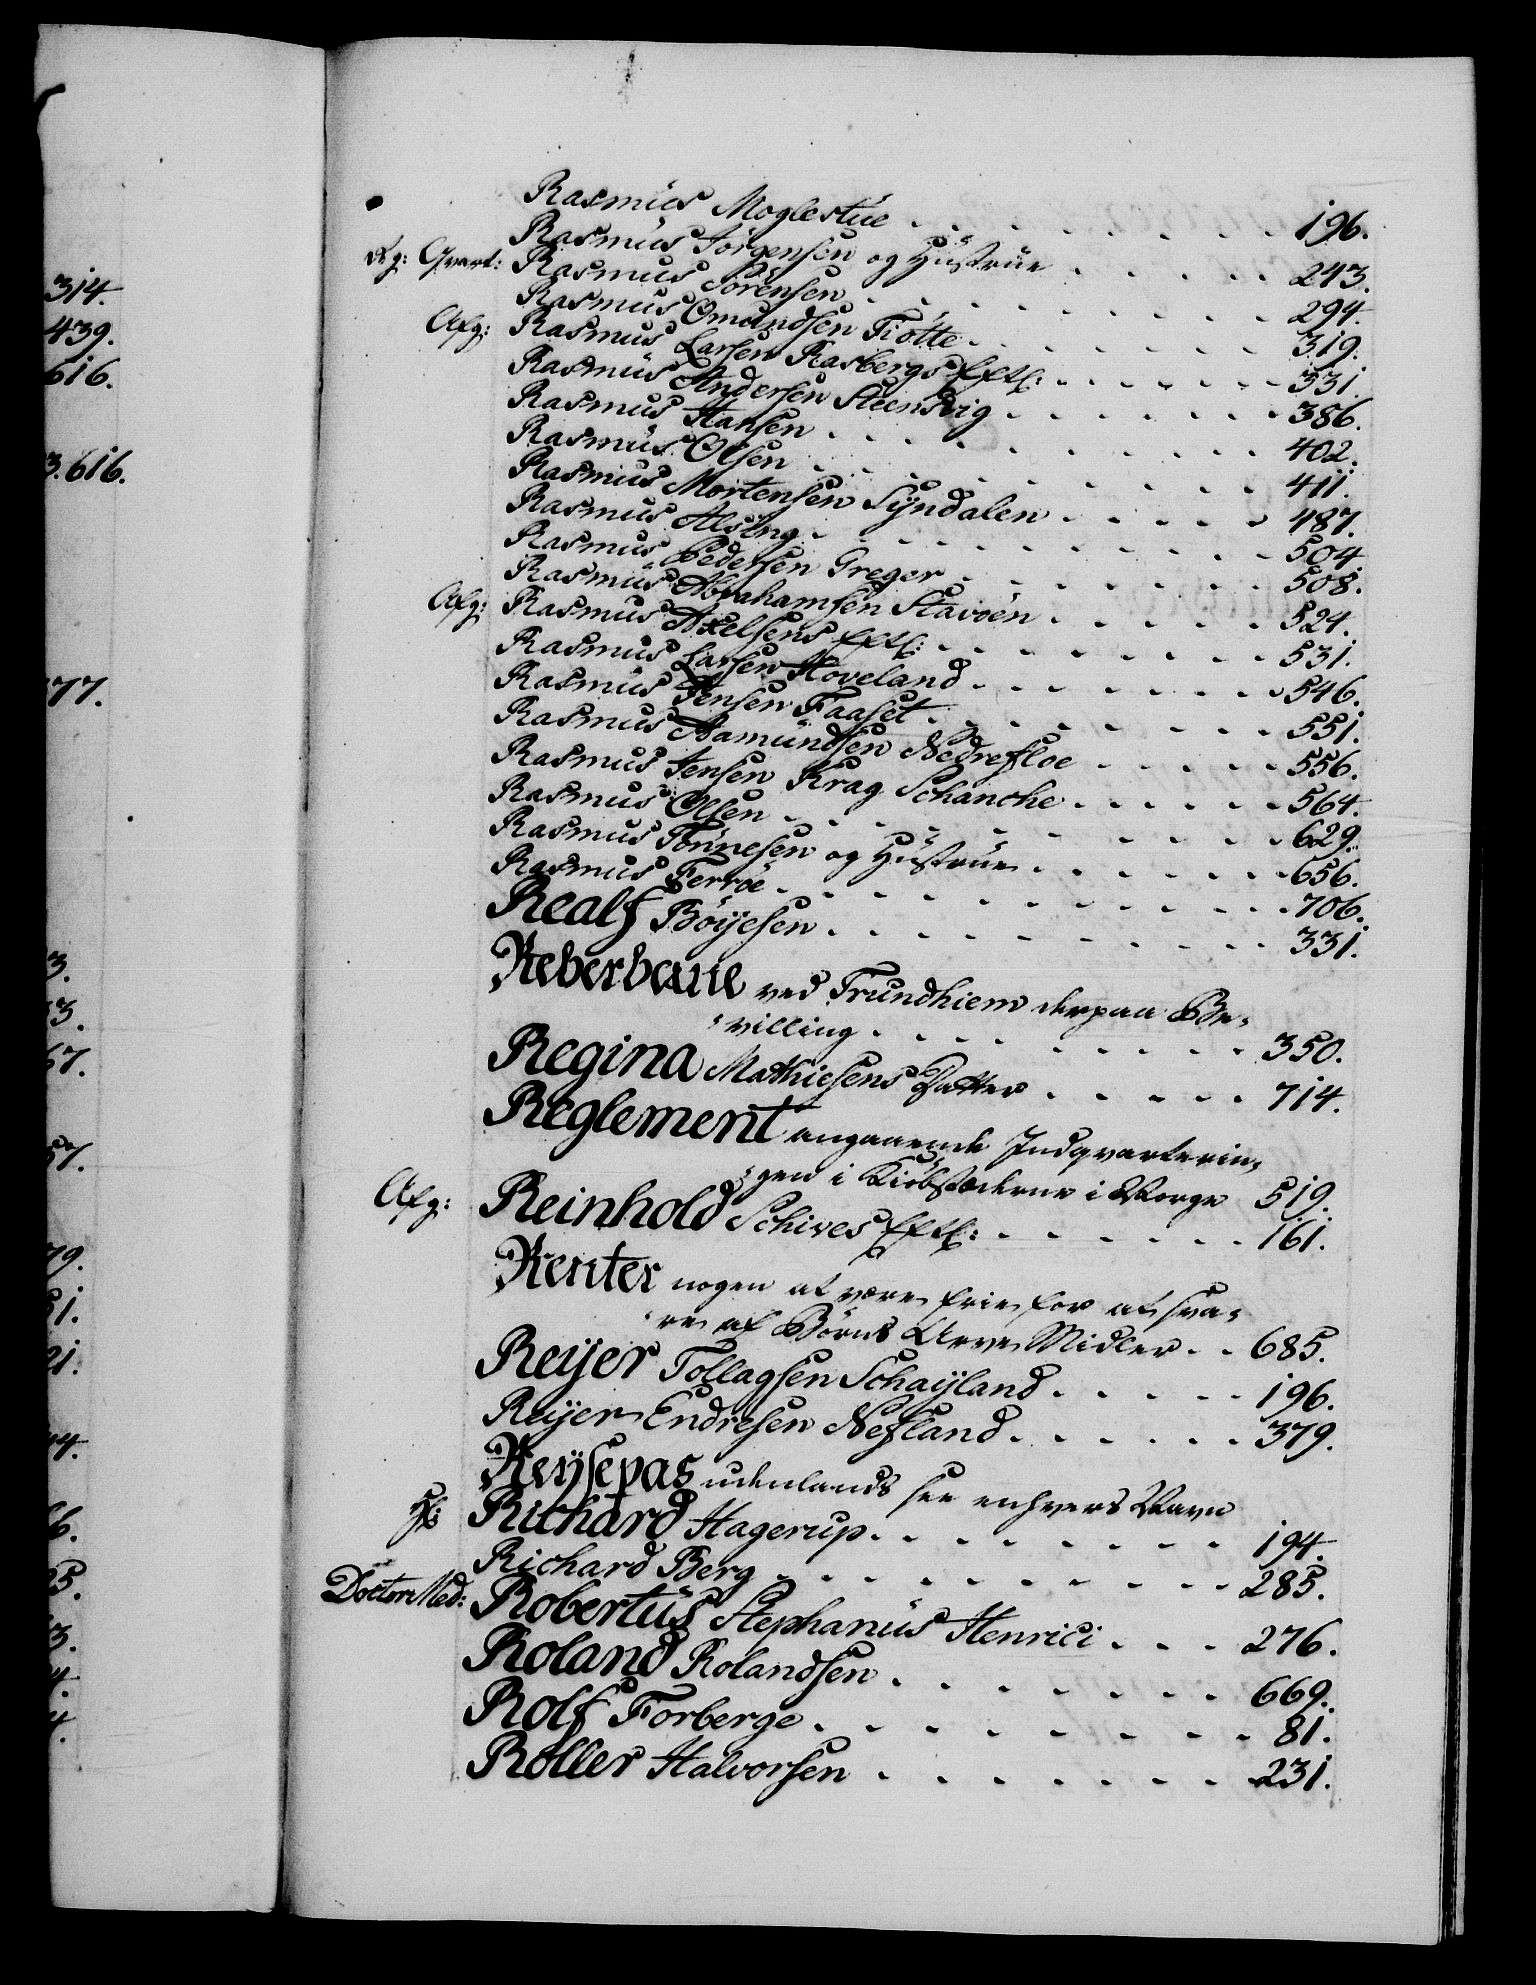 314.
439.
616.
3. 616.
77.
3.
3.
67.
57.
79.
51.
21.
44.
6.
25.
3.
4.
4.
Rasmus Moglestüe . . . . . . . 196.
Rasmus Jörgensen og Hüstrüe . . . . . 243.
Qvart: Rasmus Sörensen . . . . . . . 294.
Rasmus Omundsen Tiötte . . . . . . . 319.
Afg: Rasmus Larsen Rasbergs Eftl: . . . . . . . 331.
Rasmus Andersen Steensvig . . . . . . 386.
Rasmus Hansen . . . . . . . . . 402.
Rasmus Olsen . . . . . . . . . 411.
Rasmus Mortensen Syndalen . . . . . 487.
Rasmus Alsing . . . . . . . . . 504.
Rasmus Pedersen Greger . . . . . . . 508.
Rasmus Abrahamsen Stavöen . . . . . 524.
Afg: Rasmus Axelsens Eftl: . . . . . . . . 531.
Rasmus Larsen Hoveland . . . . . . . 546.
Rasmus Jensen Faaset . . . . . . . 551.
Rasmus Aamündsen Nedrefloe . . . . . 556.
Rasmus Jensen Krag Schanche . . . . . 564.
Rasmus Olsen . . . . . . . . . 629.
Rasmus Tönnesen og Hüstrüe . . . . . . 656.
Rasmus Ferröe . . . . . . . . . 706.
Realf Böyesen . . . . . . . . . 331.
Reberbane ved Trundhiem derpaa Be-
villing . . . . . . . . . 350.
Regina Mathiesens Datter . . . . . 714.
Reglement angaaende Indqvarterin-
gen i Kiöbstæderne i Norge 519.
Afg: Reinhold Schives Eftl: . . . . . . . 161.
Renter nogen at være frie for at sva-
re af Börns Arve Midler . . 685.
Reyer Tollagsen Schayland . . . . . 196.
Reyer Endresen Nesland . . . . . . 379.
Reysepas udenlands see enhvers Navn
Richard Hagerup . . . . . . . 194.
Richard Berg . . . . . . . . 285.
Doctor Med: Robertüs Stephanüs Henrici . . . 276.
Roland Rolandsen . . . . . . . 669.
Rolf Forberge . . . . . . . . 81.
Roller Halvorsen . . . . . . . 231.